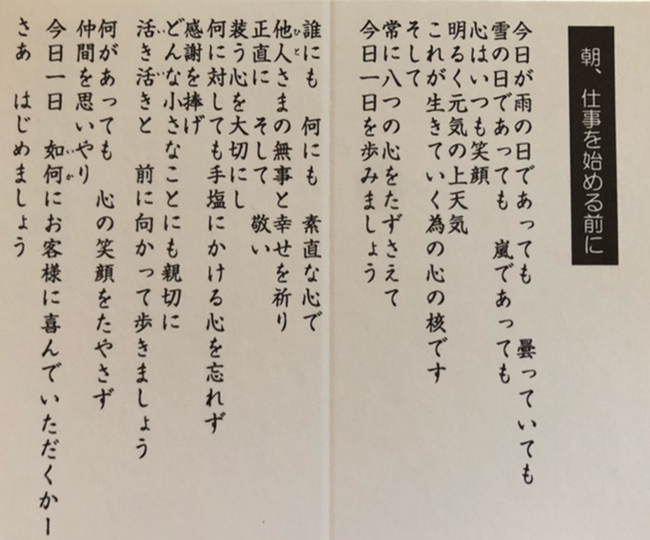 朝、仕事を始める前に
今日が雨の日であっても　曇っていても
雪の日であっても　嵐であっても
心はいつも笑顔
明るく元気の上天気
これが生きていく為の心の核です
そして
常に八つの心をたずさえて
今日一日を歩みましょう
誰にも　何にも　素直な心で
他人さまの無事と幸せを祈り
正直に　そして　敬い
装う心を大切にし
何に対しても手塩にかける心を忘れず
感謝を捧げ
どんな小さなことにも親切に
活き活きと　前に向かって歩きましょう
何があっても　心の笑顔をたやさず
仲間を思いやり
今日一日　如何にお客様に喜んでいただくかー
さあ　はじめましょう